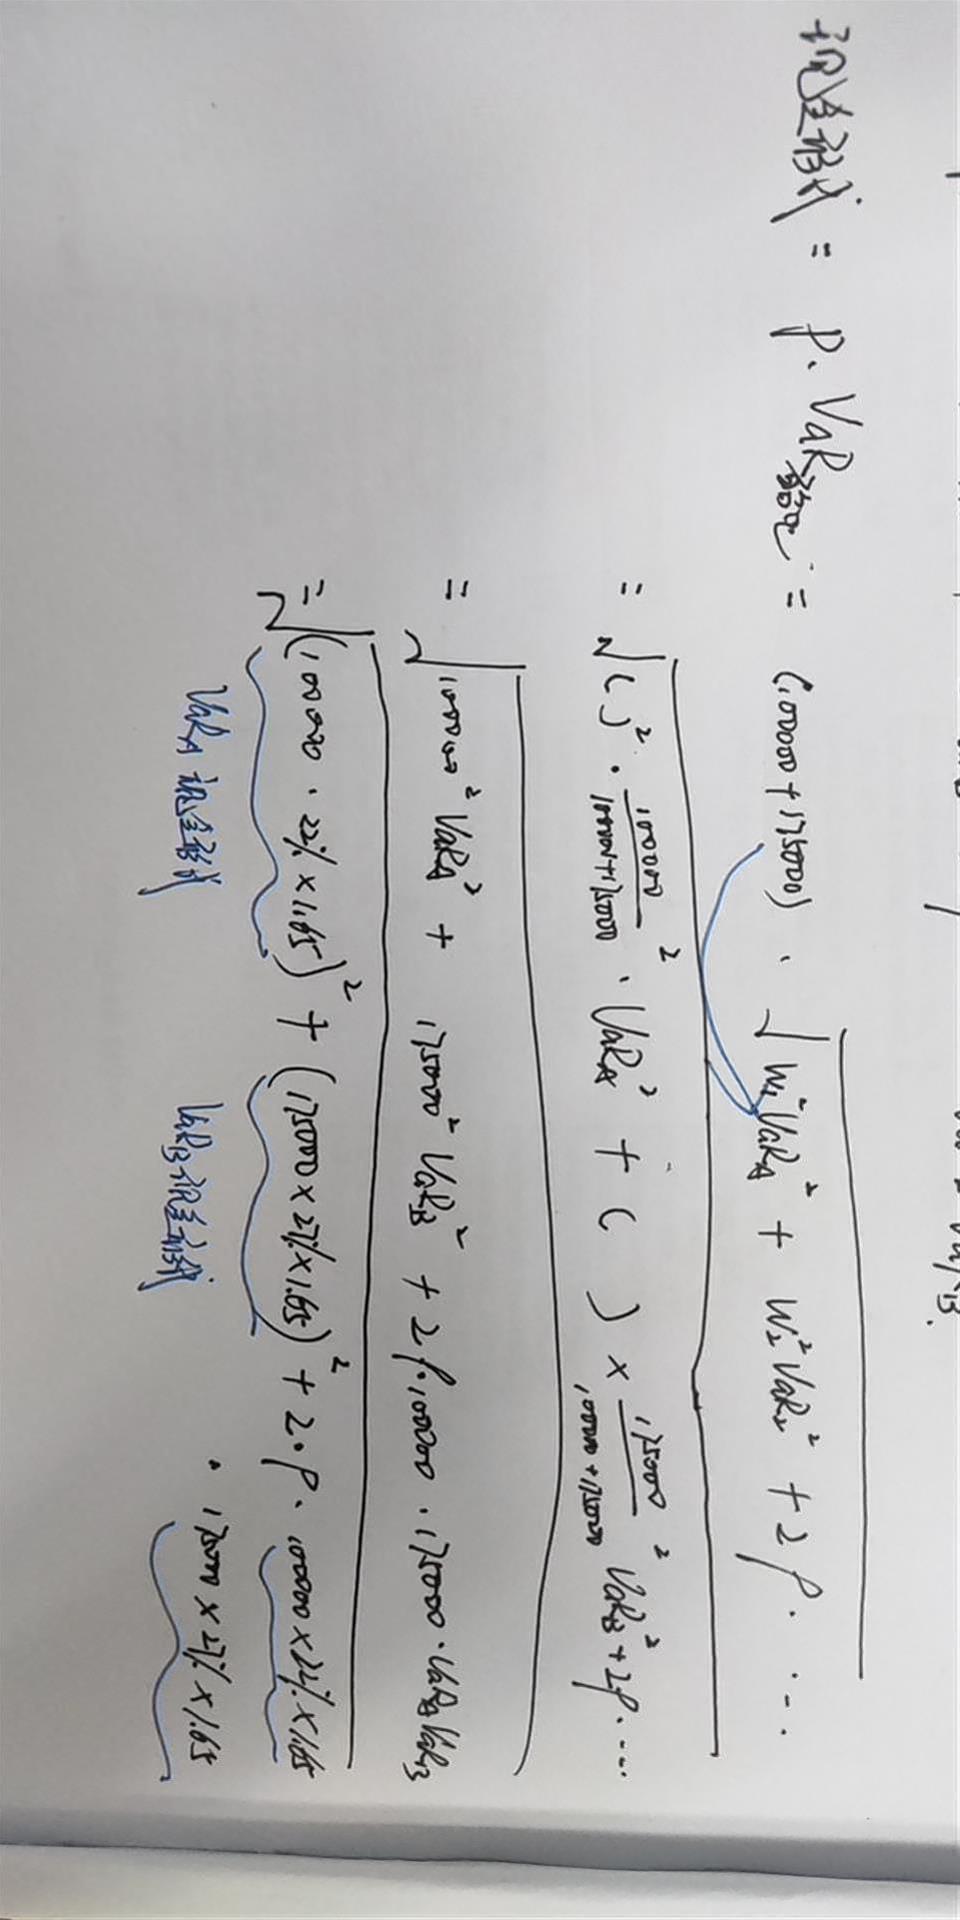 现金形式 = P. VaR组合 = (100000+175000) · √(W₁²VaRA² + W₂²VaR₂² + 2ρ. ...
= √( )² · 100000/100000+175000 ² · VaRA² + ( ) × 175000/100000+175000 ² VaRB² + 2ρ....
= √100000² VaRA² + 175000² VaRB² + 2ρ.100000 . 175000 . VaRA VaRB
= √(100000 · 22% × 1.65)² + (175000 × 27% × 1.65)² + 2·ρ. 100000 × 22% × 1.65
· 175000 × 27% × 1.65
VaRA 现金形式 VaRB 现金形式